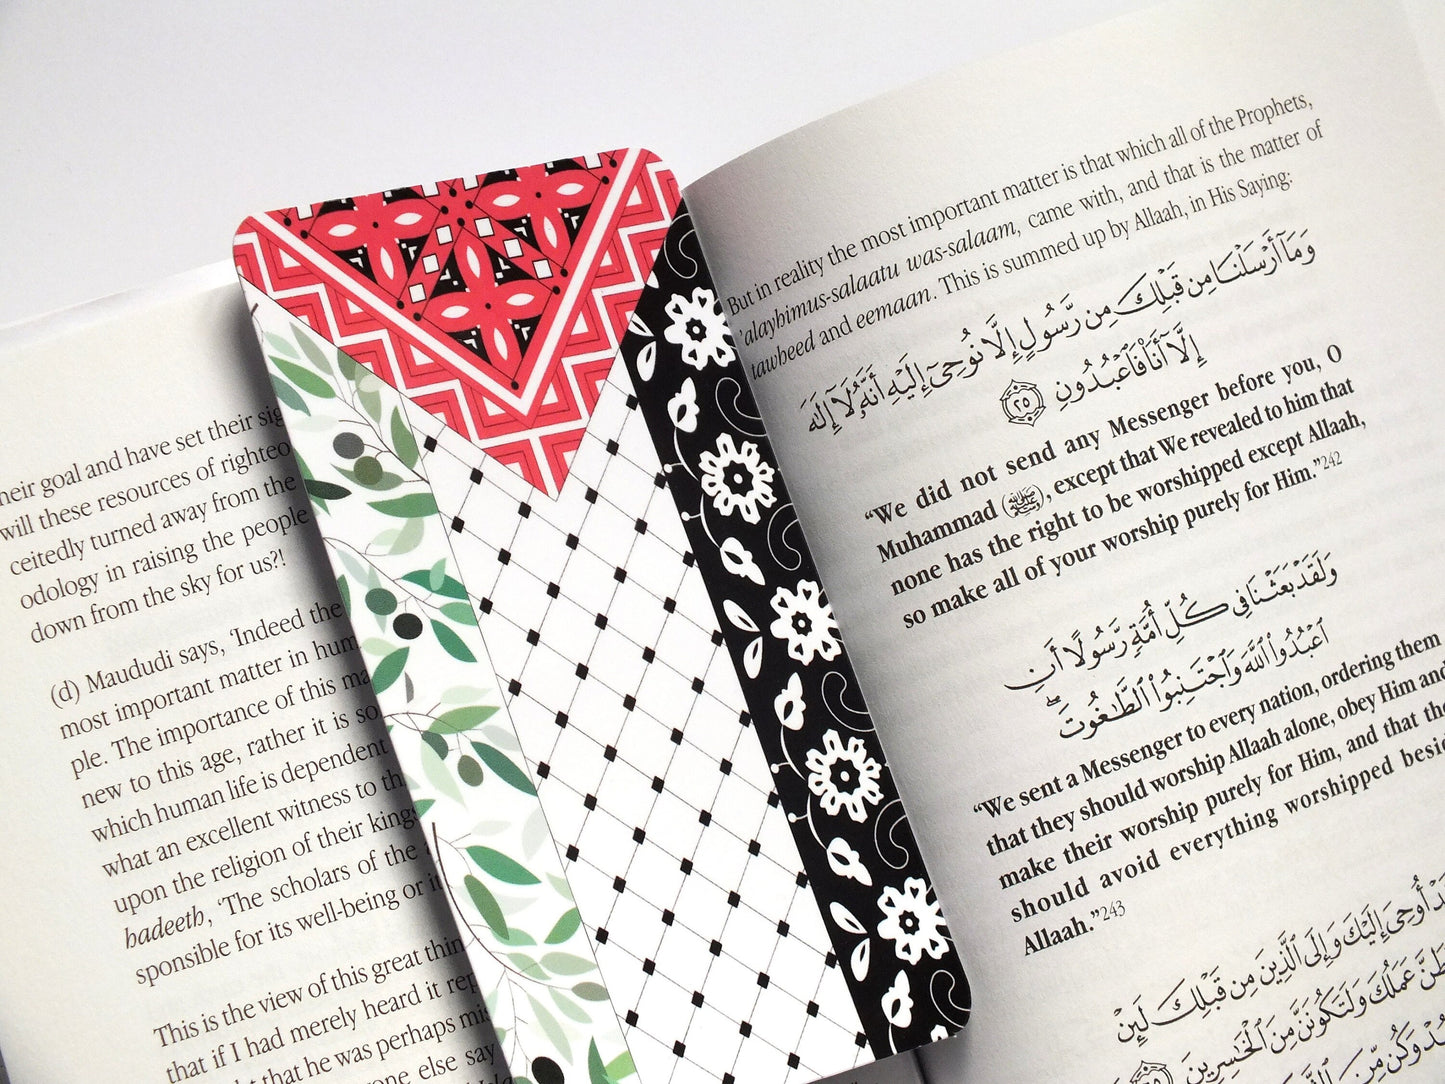 their goal and have set their sig
will these resources of righteo
ceitedly turned away from the
odology in raising the people
down from the sky for us?!
(d) Maududi says, ‘Indeed the
most important matter in hum
ple. The importance of this ma
new to this age, rather it is so
which human life is dependent
what an excellent witness to th
upon the religion of their kings
hadeeth, ‘The scholars of the
sponsible for its well-being or it
This is the view of this great thin
that if I had merely heard it rep
that he was perhaps mis
one else say
But in reality the most important matter is that which all of the Prophets,
‘alayhimus-salaatu was-salaam, came with, and that is the matter of
tawheed and eemaan. This is summed up by Allaah, in His Saying:
وَمَآ أَرْسَلْنَا مِن قَبْلِكَ مِن رَّسُولٍ إِلَّا نُوحِىٓ إِلَيْهِ أَنَّهُۥ لَآ إِلَٰهَ
إِلَّآ أَنَا۠ فَٱعْبُدُونِ ٢٥
“We did not send any Messenger before you, O
Muhammad (ﷺ), except that We revealed to him that
none has the right to be worshipped except Allaah,
so make all of your worship purely for Him.”242
وَلَقَدْ بَعَثْنَا فِى كُلِّ أُمَّةٍ رَّسُولًا أَنِ
ٱعْبُدُوا۟ ٱللَّهَ وَٱجْتَنِبُوا۟ ٱلطَّٰغُوتَ ۖ
“We sent a Messenger to every nation, ordering them
that they should worship Allaah alone, obey Him and
make their worship purely for Him, and that the
should avoid everything worshipped besid
Allaah.”243
أُوحِىَ إِلَيْكَ وَإِلَى ٱلَّذِينَ مِن قَبْلِكَ لَئِنْ
عَمَلُكَ وَلَتَكُونَنَّ مِنَ ٱلْخَٰسِرِينَ
وَكُن مِّنَ